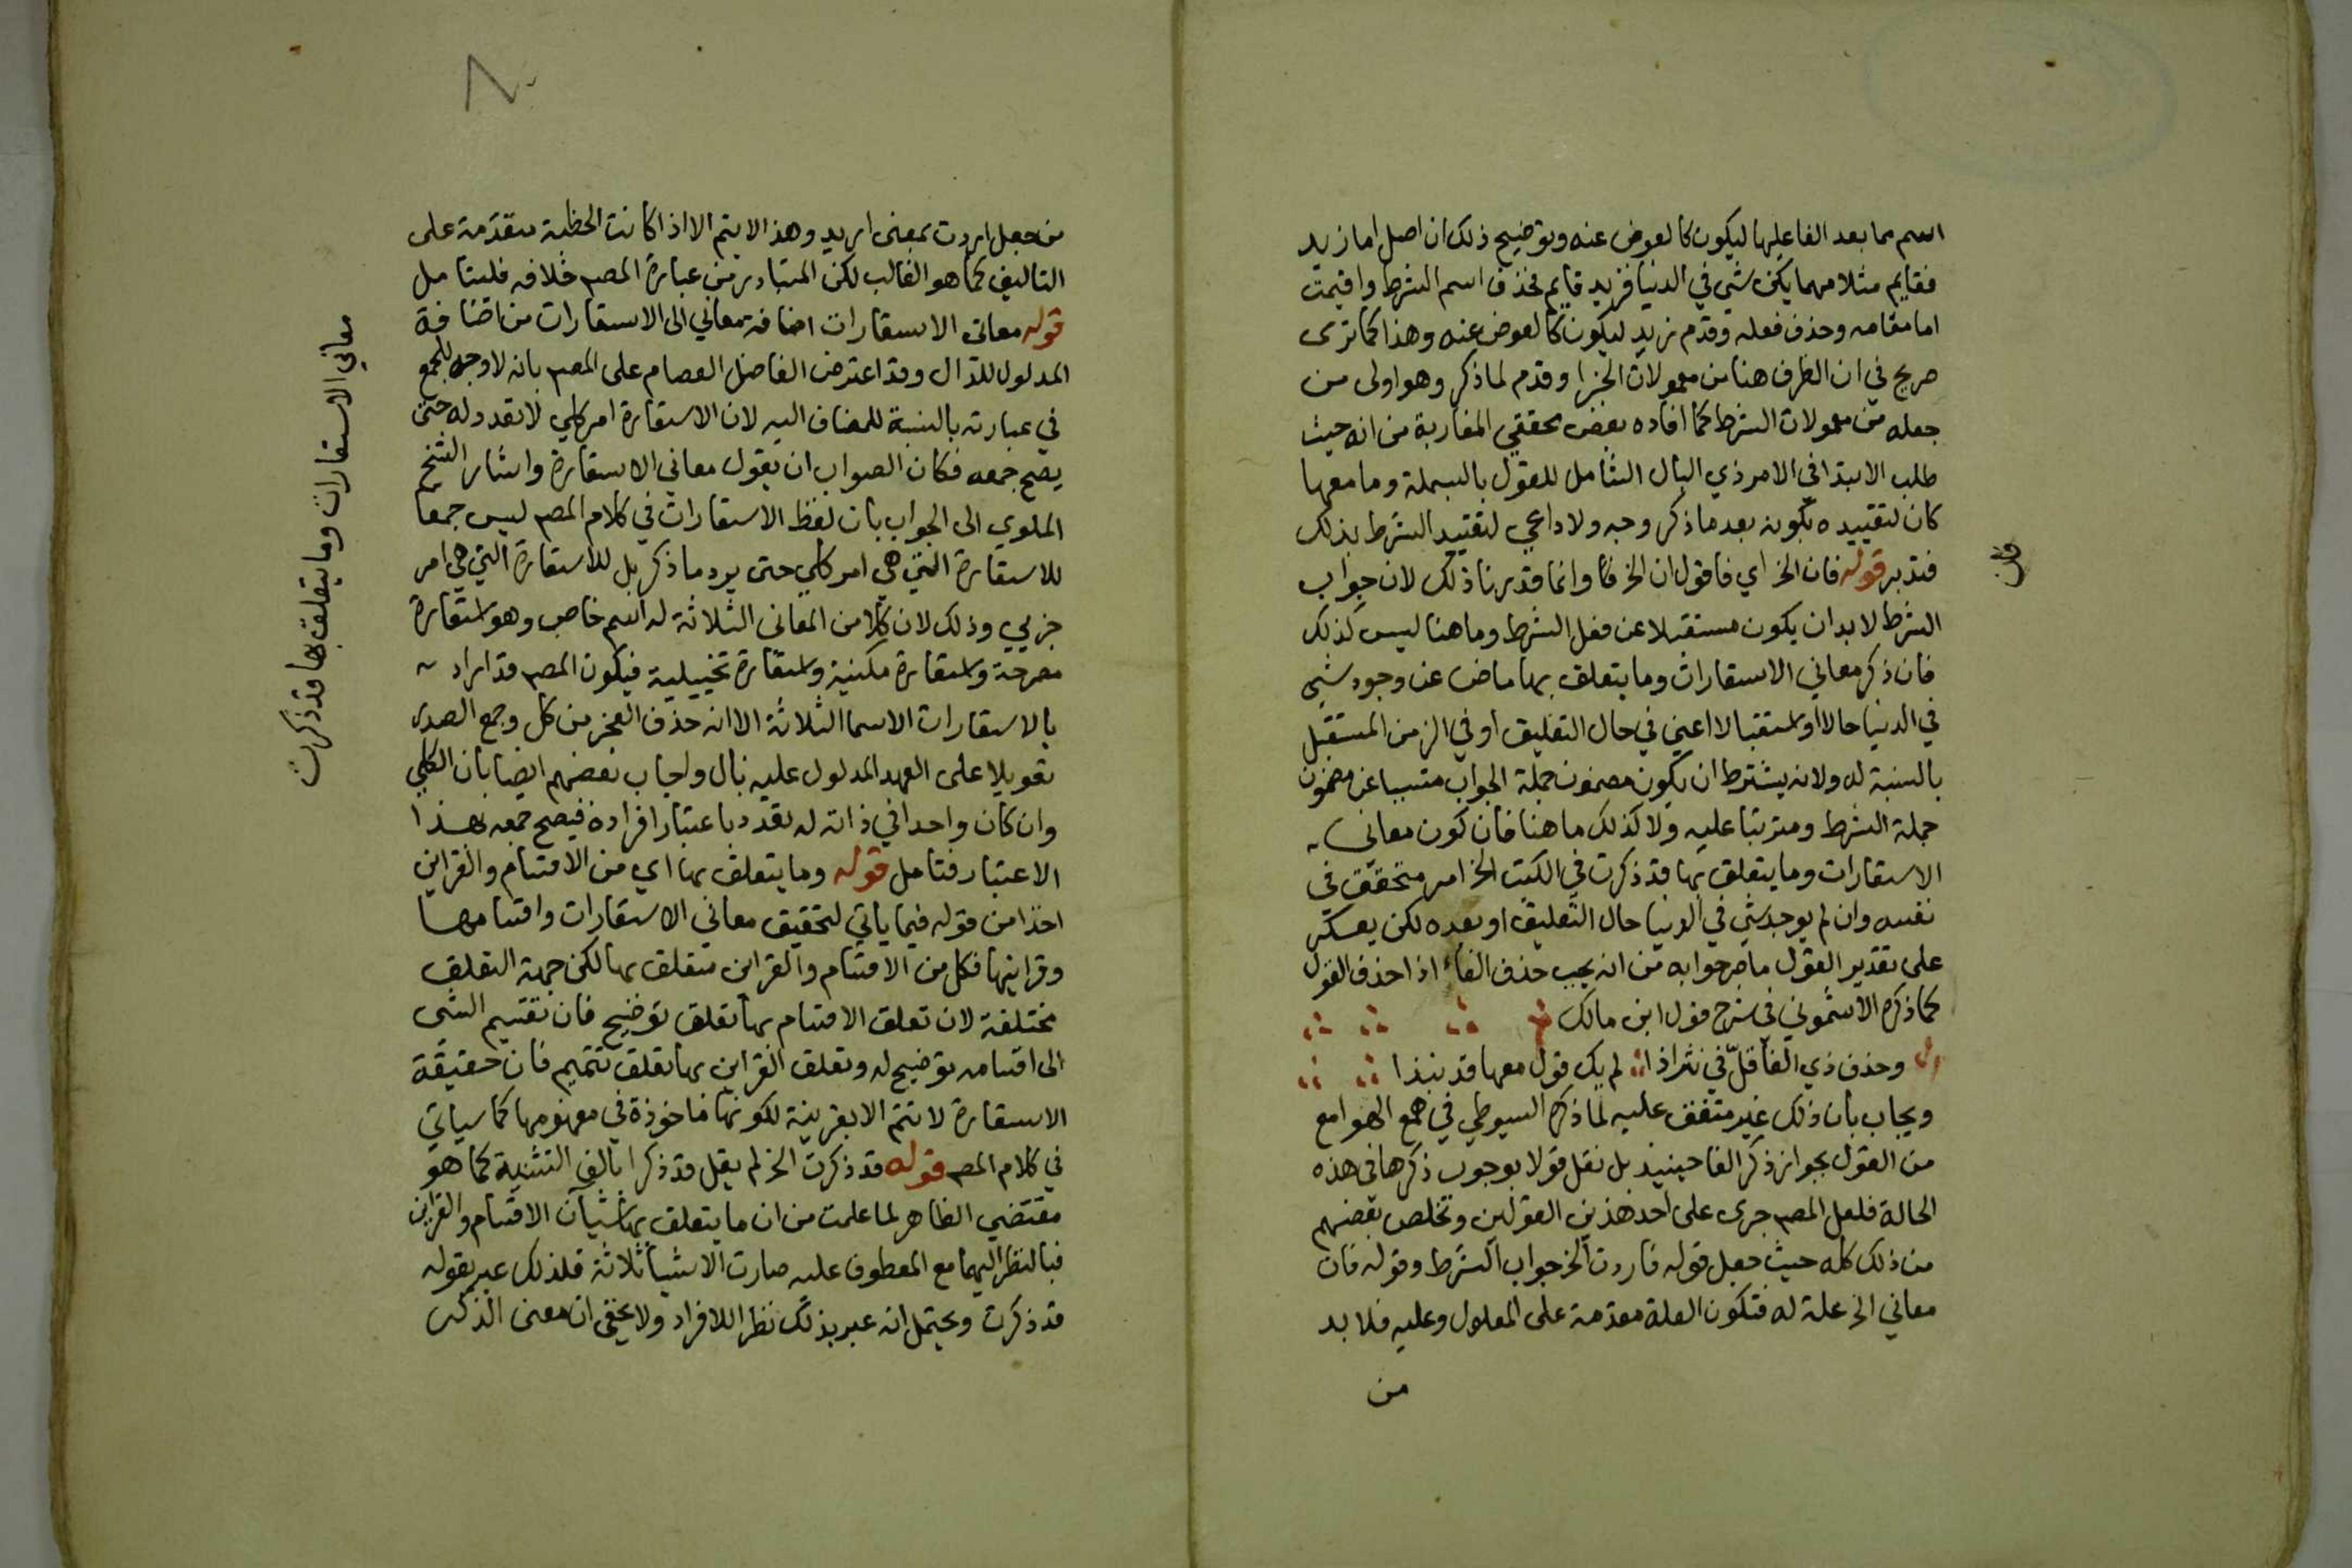 اسم مما بعد الفا عليها ليكون كالعوض عنه وتوضيح ذلك ان اصل اما زيد
فقايم مثلا مهما يكن شي في الدنيا فزيد قايم فحذف اسم الشرط واقيمت
اما مقامه وحذف فعله وقدم زيد ليكون كالعوض عنه وهذا كما ترى
صريح في ان الظرف هنا من معمولات الجزا وقدم لما ذكر وهو اولى من
جعله من معمولات الشرط كما افاده بعض محققي المغاربة من انه حيث
طلب الابتدا في الامر ذي البال الشامل للقول بالبسملة وما معها
كان لتقييده بكونه بعد ما ذكر وجه ولا داعي لتقييد الشرط بذلك
فتدبر قوله فان الخ اي فاقول ان الخ وانما قدرنا ذلك لان جواب
الشرط لابد ان يكون مستقبلا عن فعل الشرط وما هنا ليس كذلك
فان ذكر معاني الاستعارات وما يتعلق بها ماض عن وجود شي
في الدنيا حالا او مستقبالا اعني في حال التعليق او في الزمن المستقبل
بالنسبة له ولانه يشترط ان يكون مضمون جملة الجواب متسببا عن مضمون
جملة الشرط ومترتبا عليه ولا كذلك ما هنا فان كون معاني
الاستعارات وما يتعلق بها قد ذكرت في الكتب الخ امر متحقق في
نفسه وان لم يوجد شي في الدنيا حال التعليق او بعده لكن يعكر
على تقدير القول ما صرحوا به من انه يجب حذف الفاء اذا حذف القول
كما ذكره الاشموني في شرح قول ابن مالك
وحذف ذي الفا قلّ في نثر اذا لم يك قول معها قد نبذا
ويجاب بان ذلك غير متفق عليه لما ذكره السيوطي في همع الهوامع
من القول بجواز ذكر الفا حينيذ بل نقل قولا بوجوب ذكرها في هذه
الحالة فلعل المصـ جرى على احد هذين القولين وتخلص بعضهم
من ذلك كله حيث جعل قوله فاردت الخ جواب الشرط وقوله فان
معاني الخ علة له فتكون العلة مقدمة على المعلول وعليه فلا بد
من
من جعل اردت بمعنى اريد وهذا لا يتم الا اذا كانت الخطبة متقدمة على
التاليف كما هو الغالب لكن المتبادر من عبارة المصـ خلافه فليتامل
قوله معاني الاستعارات اضافة معاني الى الاستعارات من اضافة
المدلول للدال وقد اعترض الفاضل العصام على المصـ بانه لا وجه للجمع
في عبارته بالنسبة للمضاف اليه لان الاستعارة امر كلي لا تعدد له حتى
يصح جمعه فكان الصواب ان يقول معاني الاستعارة واشار الشيخ
الملوي الى الجواب بان لفظ الاستعارات في كلام المصـ ليس جمعا
للاستعارة التي هي امر كلي حتى يرد ما ذكر بل للاستعارة التي هي امر
جزيي وذلك لان كلا من المعاني الثلاثة له اسم خاص وهو استعارة
مصرحة واستعارة مكنية واستعارة تخييلية فيكون المصـ قد اراد
بالاستعارات الاسما الثلاثة الا انه حذف العجز من كل وجمع الصدر
تعويلا على العهد المدلول عليه بال واجاب بعضهم ايضا بان الكلي
وان كان واحدا في ذاته له تعدد باعتبار افراده فيصح جمعه بهذا
الاعتبار فتامل قوله وما يتعلق بها اي من الاقسام والقراين
اخذا من قوله فيما ياتي لتحقيق معاني الاستعارات واقسامها
وقراينها فكل من الاقسام والقراين متعلق بها لكن جهة التعلق
مختلفة لان تعلق الاقسام بها تعلق توضيح فان تقسيم الشي
الى اقسامه توضيح له وتعلق القراين بها تعلق تتميم فان حقيقة
الاستعارة لا تتم الا بقرينة لكونها ماخوذة في مفهومها كما سياتي
في كلام المصـ قوله قد ذكرت الخ لم يقل قد ذكرا بالف التثنية كما هو
مقتضى الظاهر لما علمت من ان ما يتعلق بها شيآن الاقسام والقراين
فبالنظر اليهما مع المعطوف عليه صارت الاشيا ثلاثة فلذلك عبر بقوله
قد ذكرت ويحتمل انه عبر بذلك نظرا للافراد ولا يخفى ان معنى الذكر
معاني الاستعارات وما يتعلق بها قد ذكرت
فان